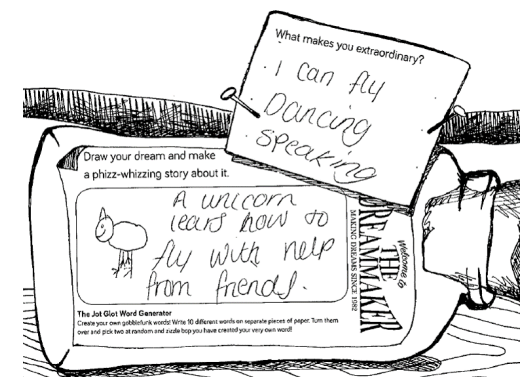 What makes you extraordinary?
· I can fly
· Dancing
· Speaking
Draw your dream and make
a phizz-whizzing story about it.
A unicorn
lears how to
fly with help
from friends.
Welcome to
THE
DREAMMAKER
MAKING DREAMS SINCE 1982
The Jot Glot Word Generator
Create your own gobblefunk words! Write 10 different words on separate pieces of paper. Turn them
over and pick two at random and sizzle bop you have created your very own word!